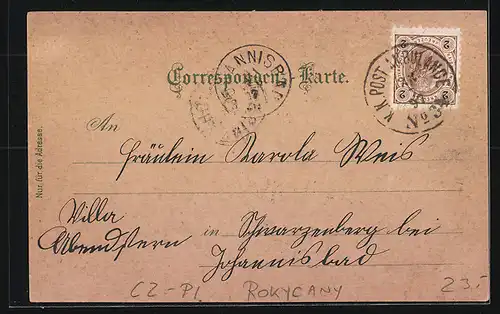 Correspondenz-Karte.
K.K. POST AMBULANCE
No
JOHANNISBAD
2 2
Nur für die Adresse.
An
Fräulein Karola Weis
Villa
Abendstern
in Schwarzenberg bei
Johannisbad
CZ-Pl ROKYCANY 23.-